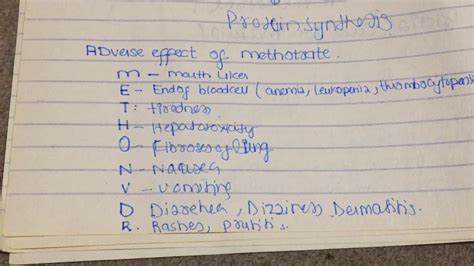 Protein synthesis
ADverse effect of methotrate.
M - mouth ulcer
E - End of blood cell ( anemia, leukopenia, thrombocytopenia
T: tiredness
H - Hepatotoxicity
O - Fibroses of lung
N - Nausea
V - vomiting
D Diarrehea, Dizziness Dermatitis.
R. Rashes, pruritis.